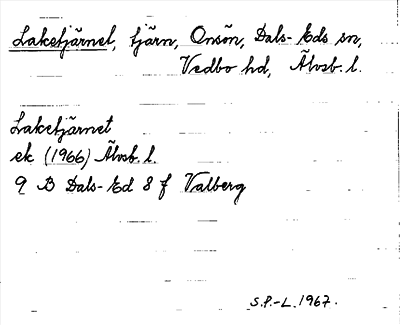 Laketjärnet, tjärn, Onsön, Dals-Eds sn,
Vedbo hd, Älvsb. l.
Laketjärnet
ek (1966) Älvsb. l.
9 B Dals-Ed 8 f Valberg
S.P.-L. 1967.